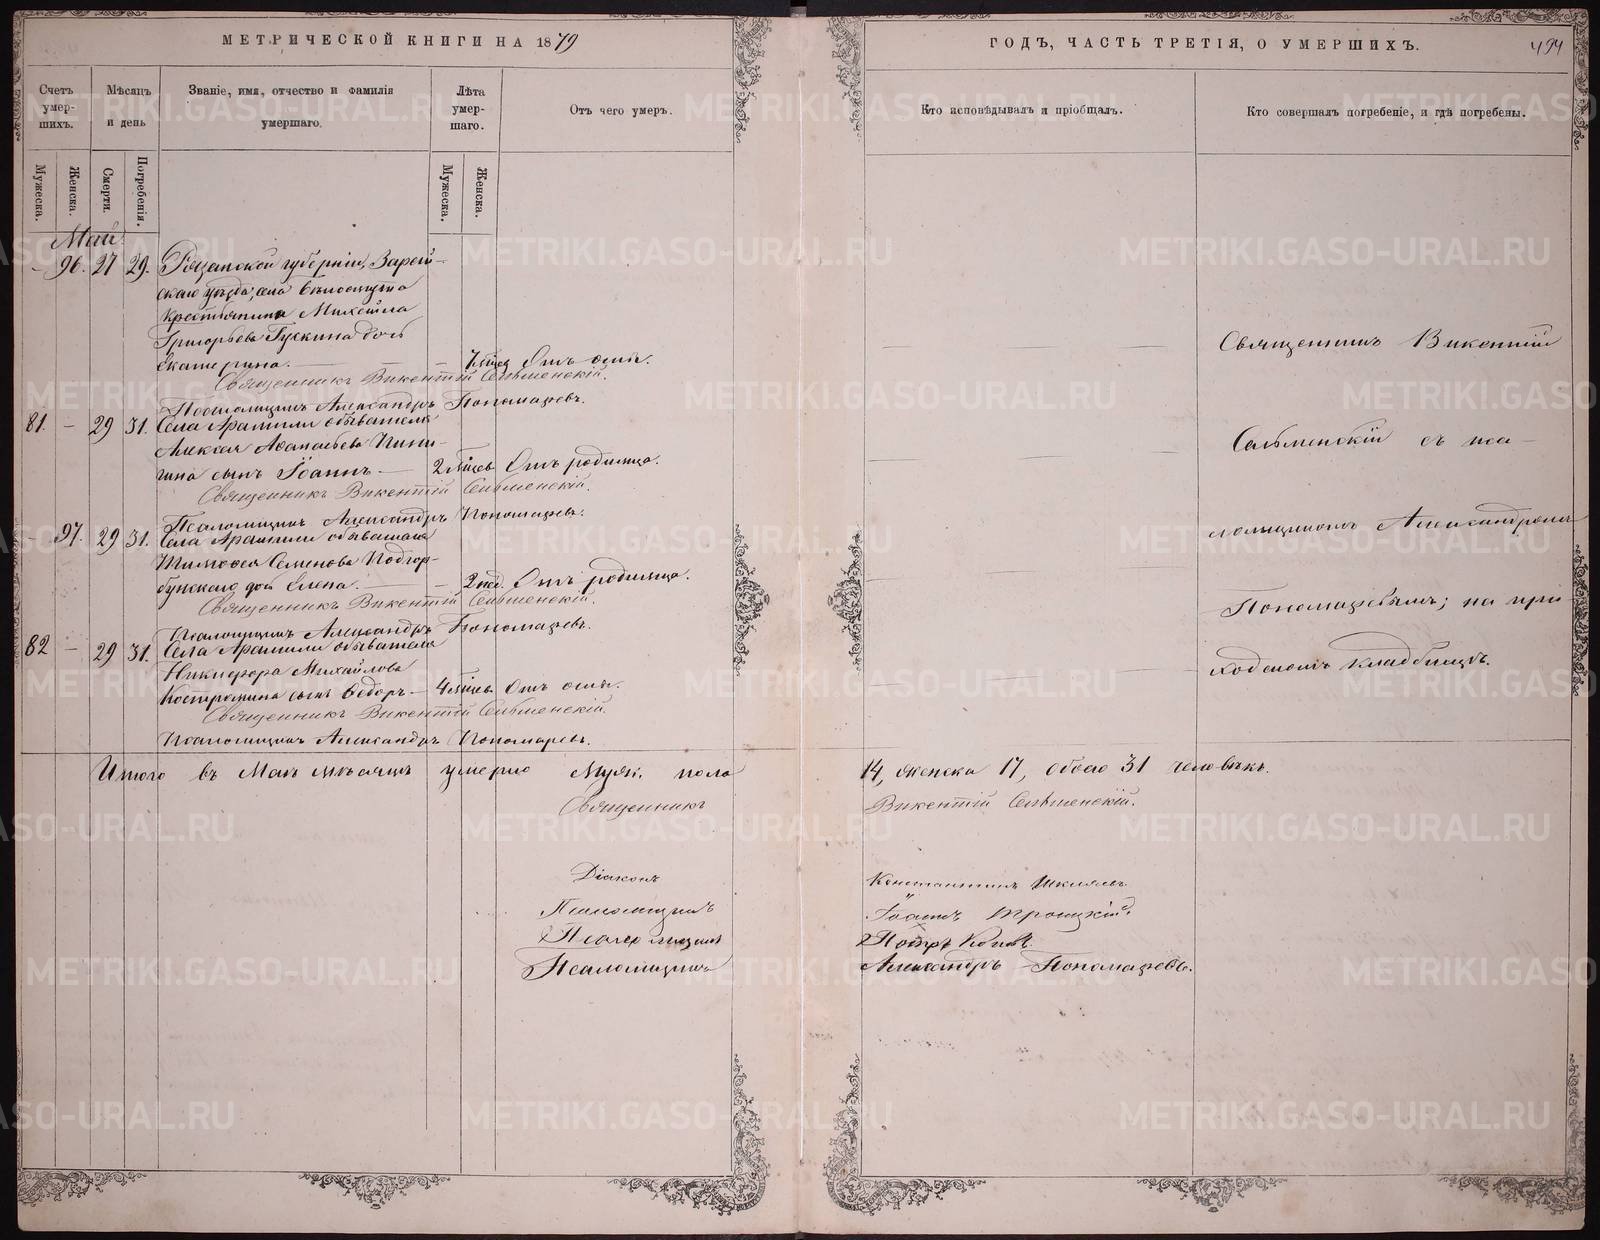 МЕТРИЧЕСКОЙ КНИГИ НА 1879
ГОДЪ, ЧАСТЬ ТРЕТІЯ, О УМЕРШИХЪ.
494
Счетъ умер-шихъ.
Мѣсяцъ и день
Званіе, имя, отчество и фамилія умершаго.
Лѣта умер-шаго.
Отъ чего умеръ.
Кто исповѣдывалъ и пріобщалъ.
Кто совершалъ погребеніе, и гдѣ погребены.
Мужеска.
Женска.
Смерти.
Погребенія.
Мужеска.
Женска.
Май
— 96. 27 29. Рязанской губерніи, Зарай-
скаго уѣзда, села
крестьянина Михаила
Григорьева дочь
Екатерина. — — 7 мѣсяц. Отъ оспы.
Священникъ Викентій Сельменскій.
Псаломщикъ Александръ Пономаревъ.
81. — 29 31. Села Арамили обывателя
Алексея Аѳанасьева Пини-
гина сынъ Іоаннъ — 2 мѣсяц. Отъ родимца.
Священникъ Викентій Сельменскій.
Псаломщикъ Александръ Пономаревъ.
— 97. 29 31. Села Арамили обывателя
Тимоѳея Семенова Подгор-
бунскаго дочь Елена. — — 2 нед. Отъ родимца.
Священникъ Викентій Сельменскій.
Псаломщикъ Александръ Пономаревъ.
82 — 29 31. Села Арамили обывателя
Никифора Михайлова
Костромина сынъ Ѳедоръ — 4 мѣсяц. Отъ оспы.
Священникъ Викентій Сельменскій.
Псаломщикъ Александръ Пономаревъ.
Священникъ Викентій
Сельменскій съ пса-
ломщикомъ Александромъ
Пономаревымъ; на при-
ходскомъ кладбищѣ.
Итого въ Маѣ мѣсяцѣ умерло Муж. пола 14, женска 17, обоего 31 человѣкъ.
Священникъ Викентій Сельменскій.
Діаконъ Константинъ
Псаломщикъ Іоаннъ Троицкій.
Псаломщикъ Петръ
Псаломщикъ Александръ Пономаревъ.
METRIKI.GASO-URAL.RU